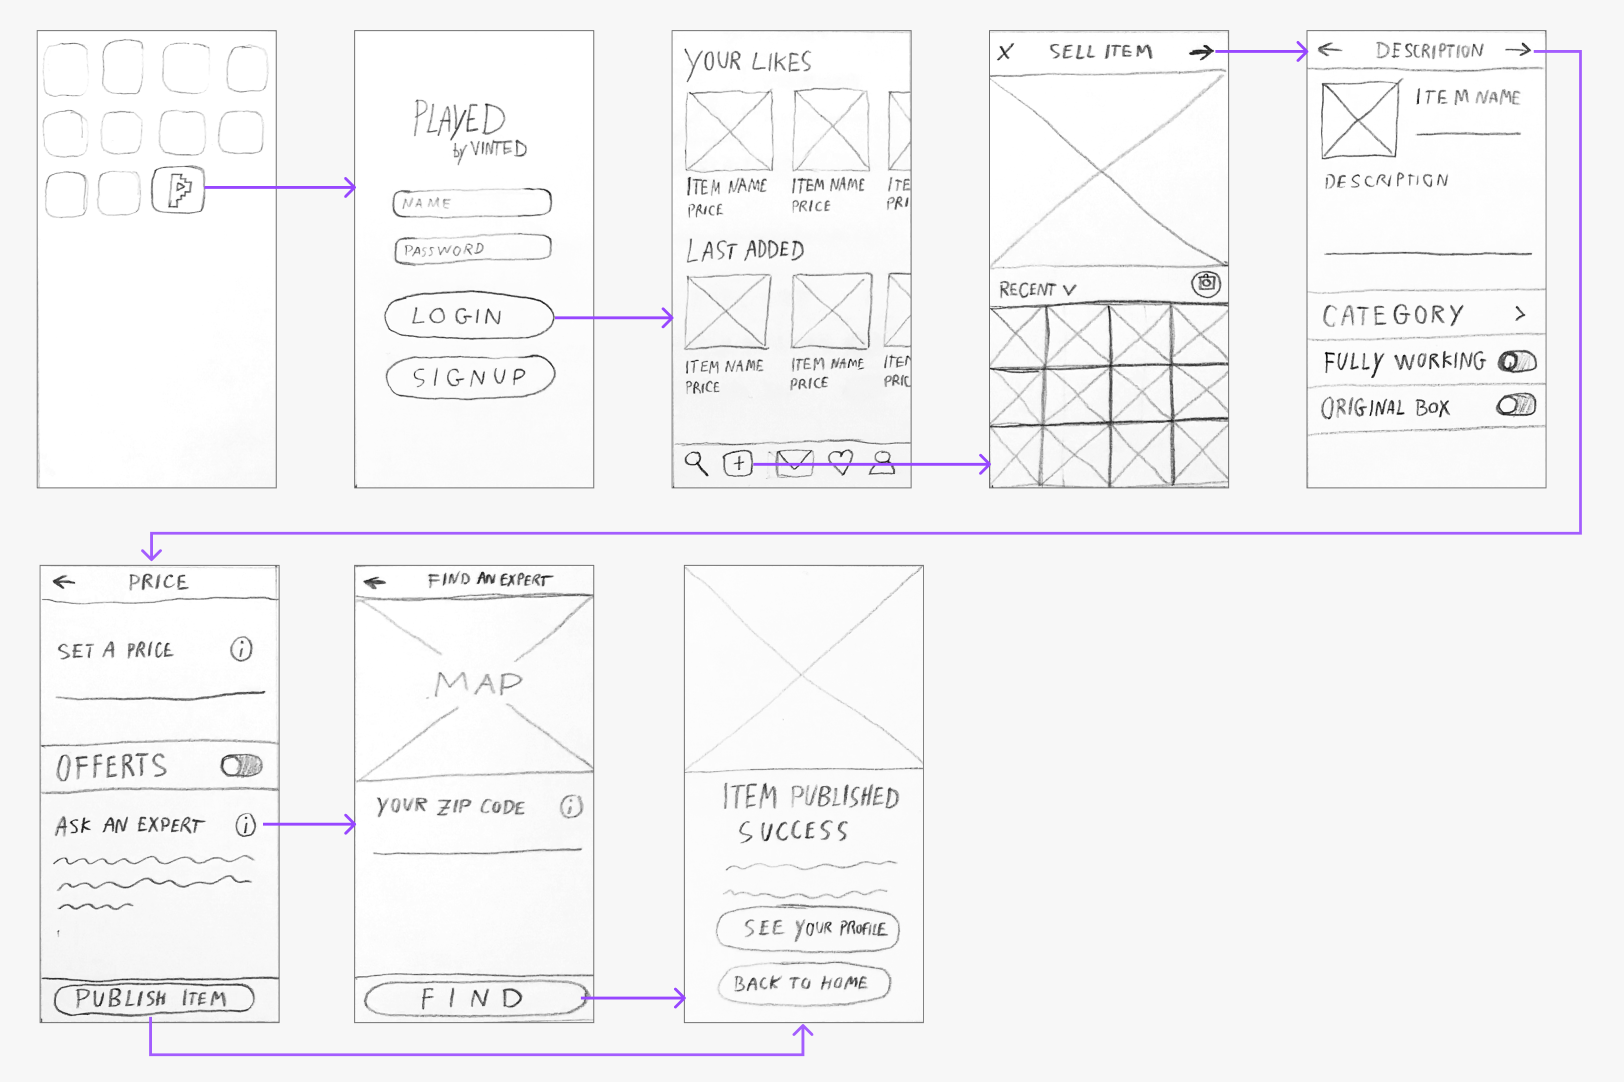 PLAYED
by VINTED
NAME
PASSWORD
LOGIN
SIGNUP
YOUR LIKES
ITEM NAME
PRICE
ITEM NAME
PRICE
ITE
PRI
LAST ADDED
ITEM NAME
PRICE
ITEM NAME
PRICE
ITEN
PRIC
X SELL ITEM
RECENT
DESCRIPTION
ITEM NAME
DESCRIPTION
CATEGORY
FULLY WORKING
ORIGINAL BOX
PRICE
SET A PRICE i
OFFERTS
ASK AN EXPERT i
PUBLISH ITEM
FIND AN EXPERT
MAP
YOUR ZIP CODE i
FIND
ITEM PUBLISHED
SUCCESS
SEE YOUR PROFILE
BACK TO HOME